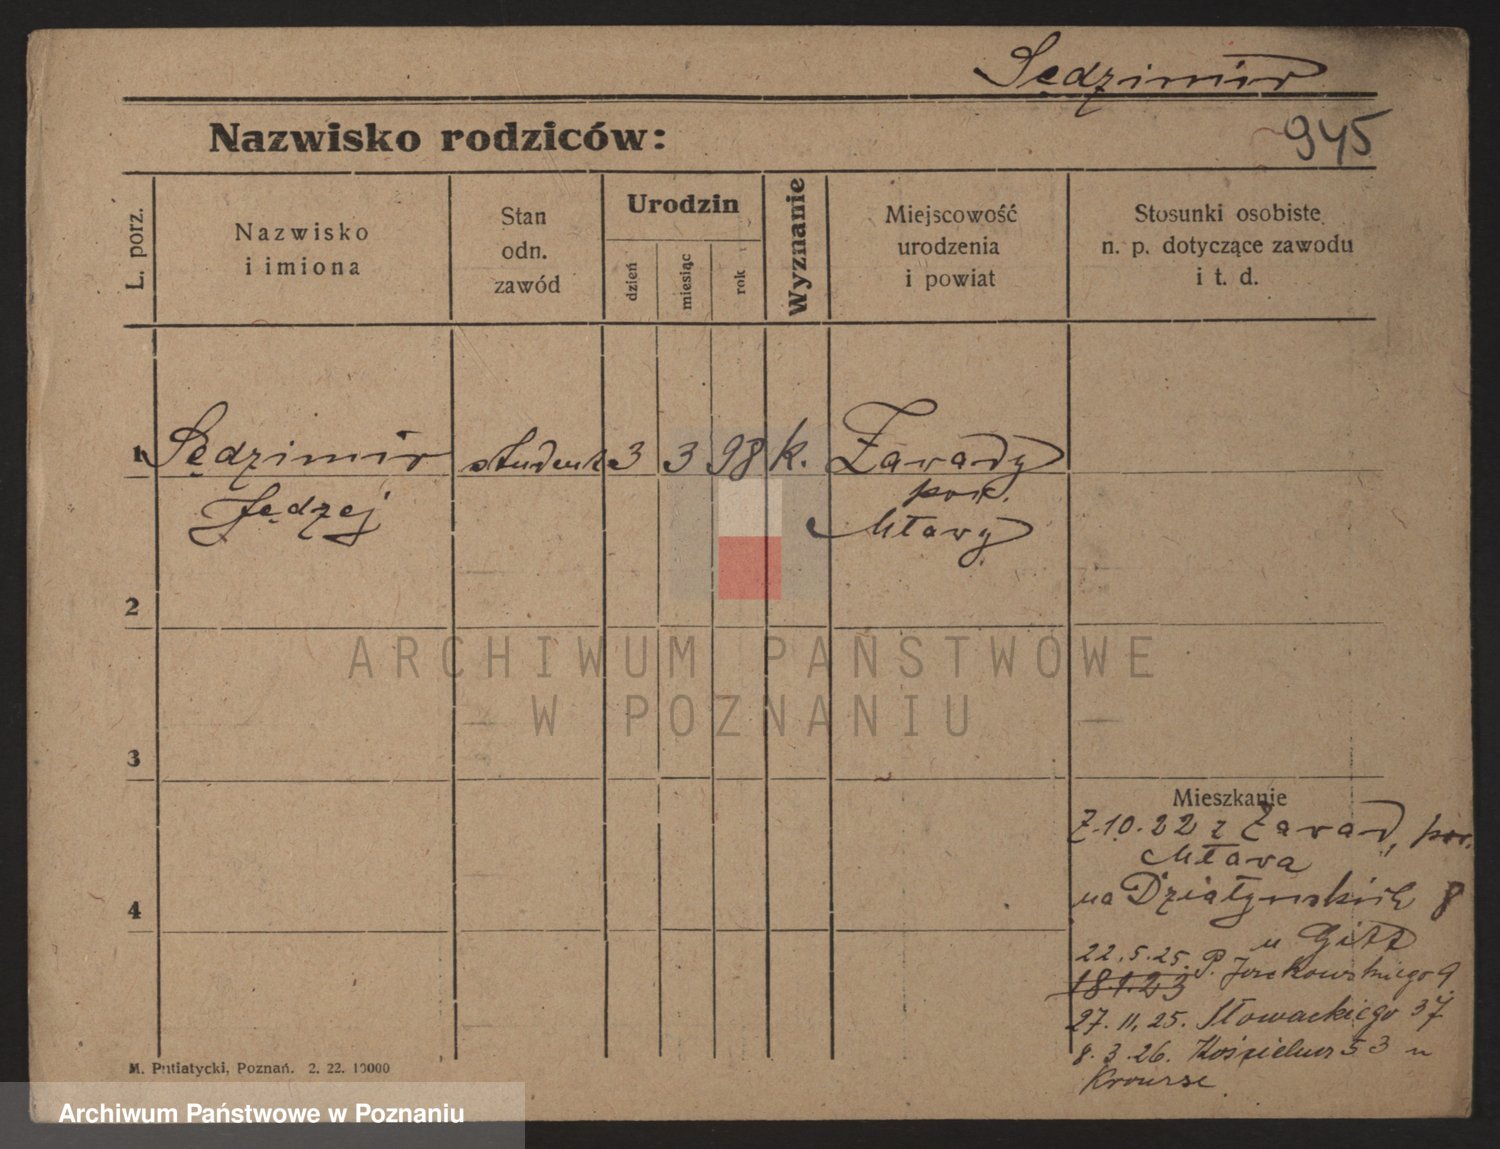 Sędzimir
945
Nazwisko rodziców:
L. porz.
Nazwisko
i imiona
Stan
odn.
zawód
Urodzin
dzień
miesiąc
rok
Wyznanie
Miejscowość
urodzenia
i powiat
Stosunki osobiste
n. p. dotyczące zawodu
i t. d.
1 Sędzimir student 3 3 98 k. Zawady
Jędzej pow.
Mławy
2
ARCHIWUM PAŃSTWOWE
W POZNANIU
3
Mieszkanie
7.10.22 z Zawad, pow.
Mława
na Działyńskich 8
4
u
22.5.25. P.
18.1.23
27.11.25. Słowackiego 37
8.3.26. 53 u
M. Putiatycki, Poznań. 2. 22. 10000
Archiwum Państwowe w Poznaniu